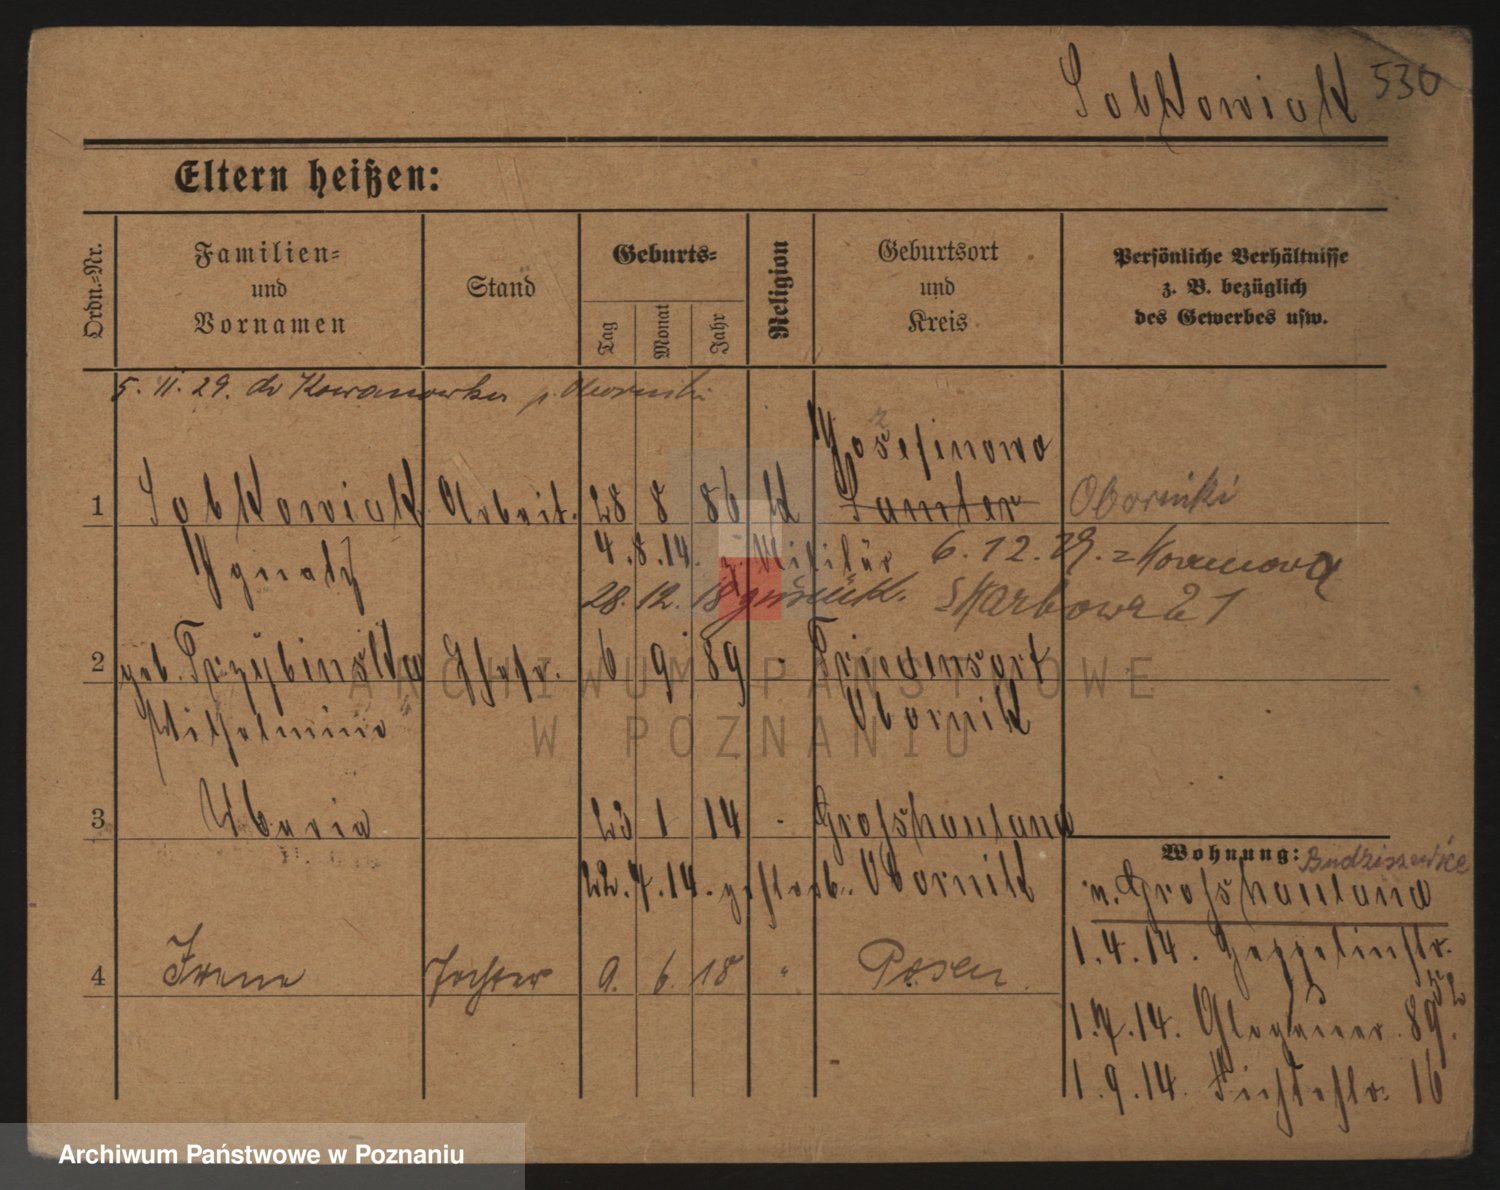 Sobkowiak 530
Eltern heißen:
Ordn.-Nr.
Familien- und Vornamen
Stand
Geburts-
Tag
Monat
Jahr
Religion
Geburtsort und Kreis
Persönliche Verhältnisse
z. B. bezüglich
des Gewerbes usw.
5. 11. 29. do Kowanowka p. Oborniki
Josefinowo
1 Sobkowiak Arbeit. 28 8 86 k Samter Oborniki
Ignatz 4.8.14. z. Militär 6.12.29.
28.12.18 zurück. Skarbowa 21
2 geb. Przybinska Ehefr. 6 9 89 " Friedensort
Wilhelmine Obornik
3 Maria 23 1 14 " Grosshauland
22.7.14. gestorb. Obornik
Wohnung: Budziszewice
v. Grosshauland
1.4.14. Zeppelinstr.
4 Irene Tochter 9. 6. 18 " Posen
1.7.14. Glogauer 89.
1.9.14. Fichtestr. 16
ARCHIWUM PAŃSTWOWE
W POZNANIU
Archiwum Państwowe w Poznaniu